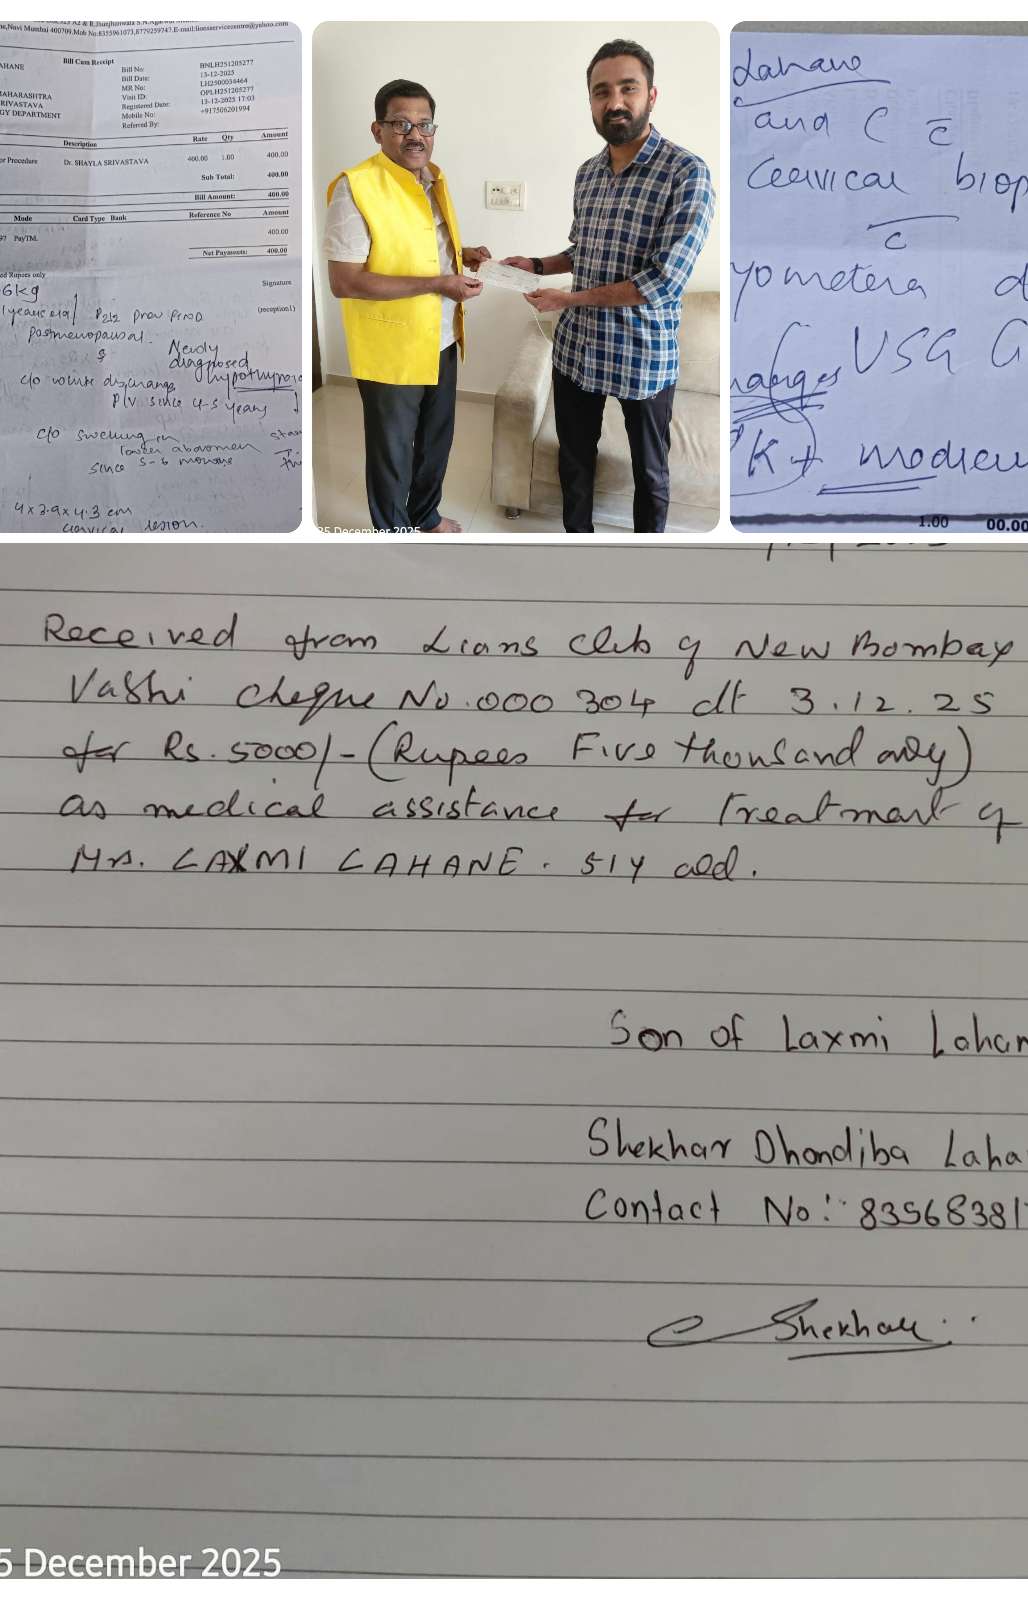 Navi Mumbai 400709.Mob No:8355961073,8779259747.E-mail:lionsservicecentre@yahoo.com
Bill Cum Receipt
AHANE
MAHARASHTRA
RIVASTAVA
GY DEPARTMENT
Bill No: BNLH251205277
Bill Date: 13-12-2025
MR No: LH2500034464
Visit ID: OPLH251205277
Registered Date: 13-12-2025 17:03
Mobile No: +917506201994
Referred By:
Description Rate Qty Amount
or Procedure Dr. SHAYLA SRIVASTAVA 400.00 1.00 400.00
Sub Total: 400.00
Bill Amount: 400.00
Mode Card Type Bank Reference No Amount
97 PayTM. 400.00
Net Payments: 400.00
ed Rupees only
Signature
(reception1)
6kg
1 years old P2L2 prev
Postmenopausal.
Newly
diagnosed
c/o white discharge
P/V since 4-5 years
c/o swelling in
lower abdomen
since 5-6 months
4 x 3.9 x 4.3 cm
cervical lesion.
25 December 2025
Lahane
and C c̄
Cervical biop
c̄
yometera d
USG
hanges
K+ medicu
1.00 00.00
Received from Lions Club of New Bombay
Vashi cheque No.000304 dt 3.12.25
for Rs.5000/- (Rupees Five thousand only)
as medical assistance for Treatment of
Mrs. LAXMI LAHANE. 51Y old.
Son of Laxmi Lahan
Shekhar Dhondiba Laha
Contact No: 83568381
Shekhar
5 December 2025